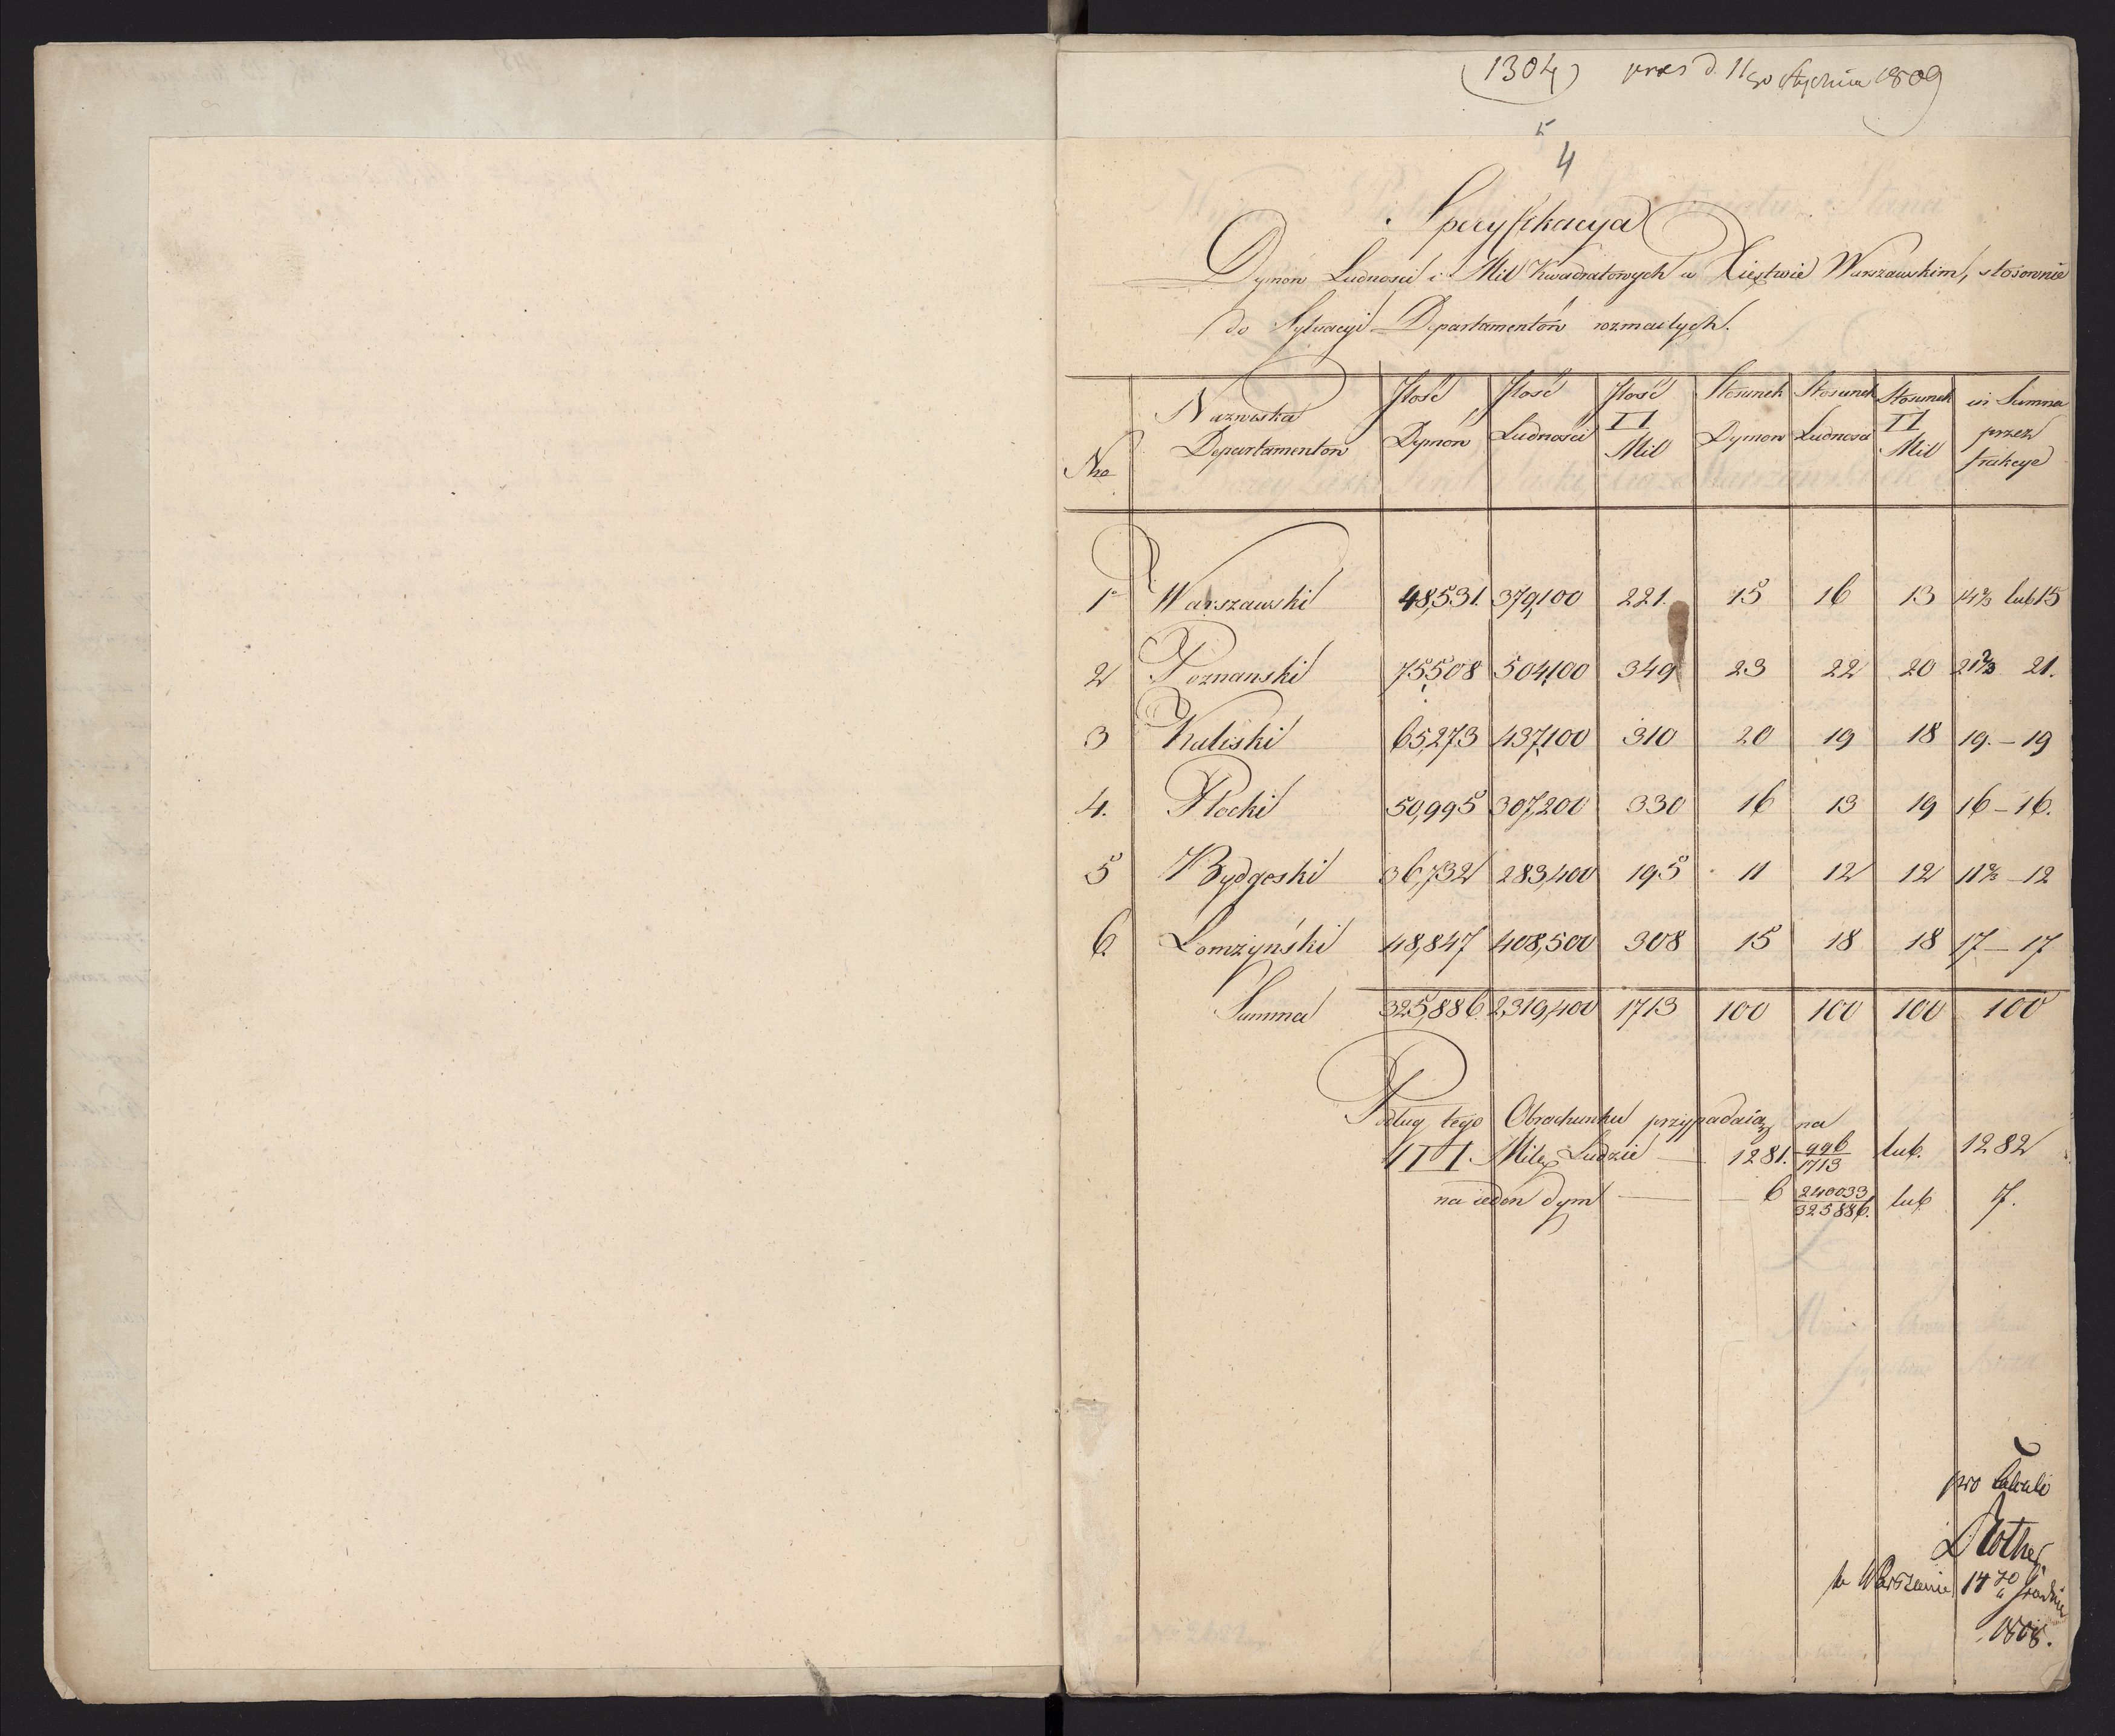 (1304) pres d. 11go Stycznia 1809
5
4
Specyfikacya
Dymow Ludnosci i Mil Kwadratowych w Xięstwie Warszawskim, stosownie
do Sytuacyi Departamentów rozmaitych.
Nro Nazwiska Departamentow Ilość Dymów Ilość Ludności Ilość □ Mil Stosunek Dymow Stosunek Ludnosci Stosunek □ Mil in Summa przez frakcye
1o Warszawski 48,531. 379,100 221. 15 16 13 14⅔ lub 15
2 Poznanski 75,508 504,100 349 23 22 20 21⅔ 21.
3 Kaliski 65,273 437,100 310 20 19 18 19. – 19
4. Płocki 50,995 307,200 330 16 13 19 16 – 16.
5 Bydgoski 36,732 283,400 195 11 12 12 11⅔ – 12
6. Lomzyński 48,847 408,500 308 15 18 18 17 – 17
Summa 325,886 2,319,400 1713 100 100 100 100
Podług tego Obrachunku przypadaią na
1 □ Milę Ludzie — 1281. 996/1713 lub. 1282
na ieden dym — 6 240033/325886. lub 7.
pro Calculo
Rother
w Warszawie 14go Grudnia
1808.